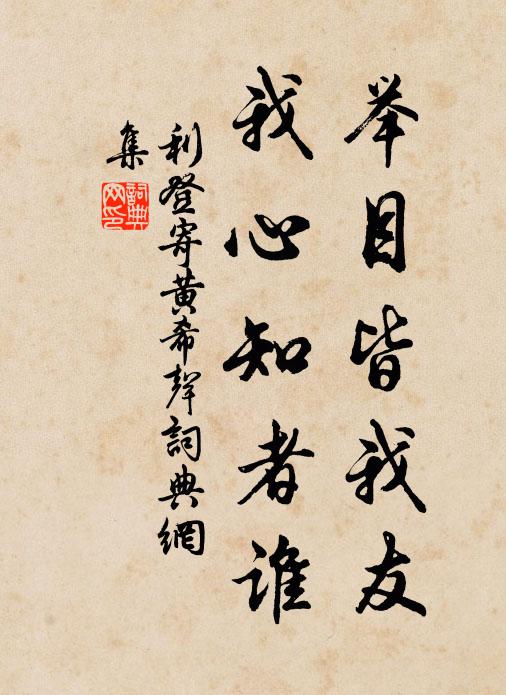 举目皆我友
我心知者谁
利登寄黄希声詞典網
集
詞典网印